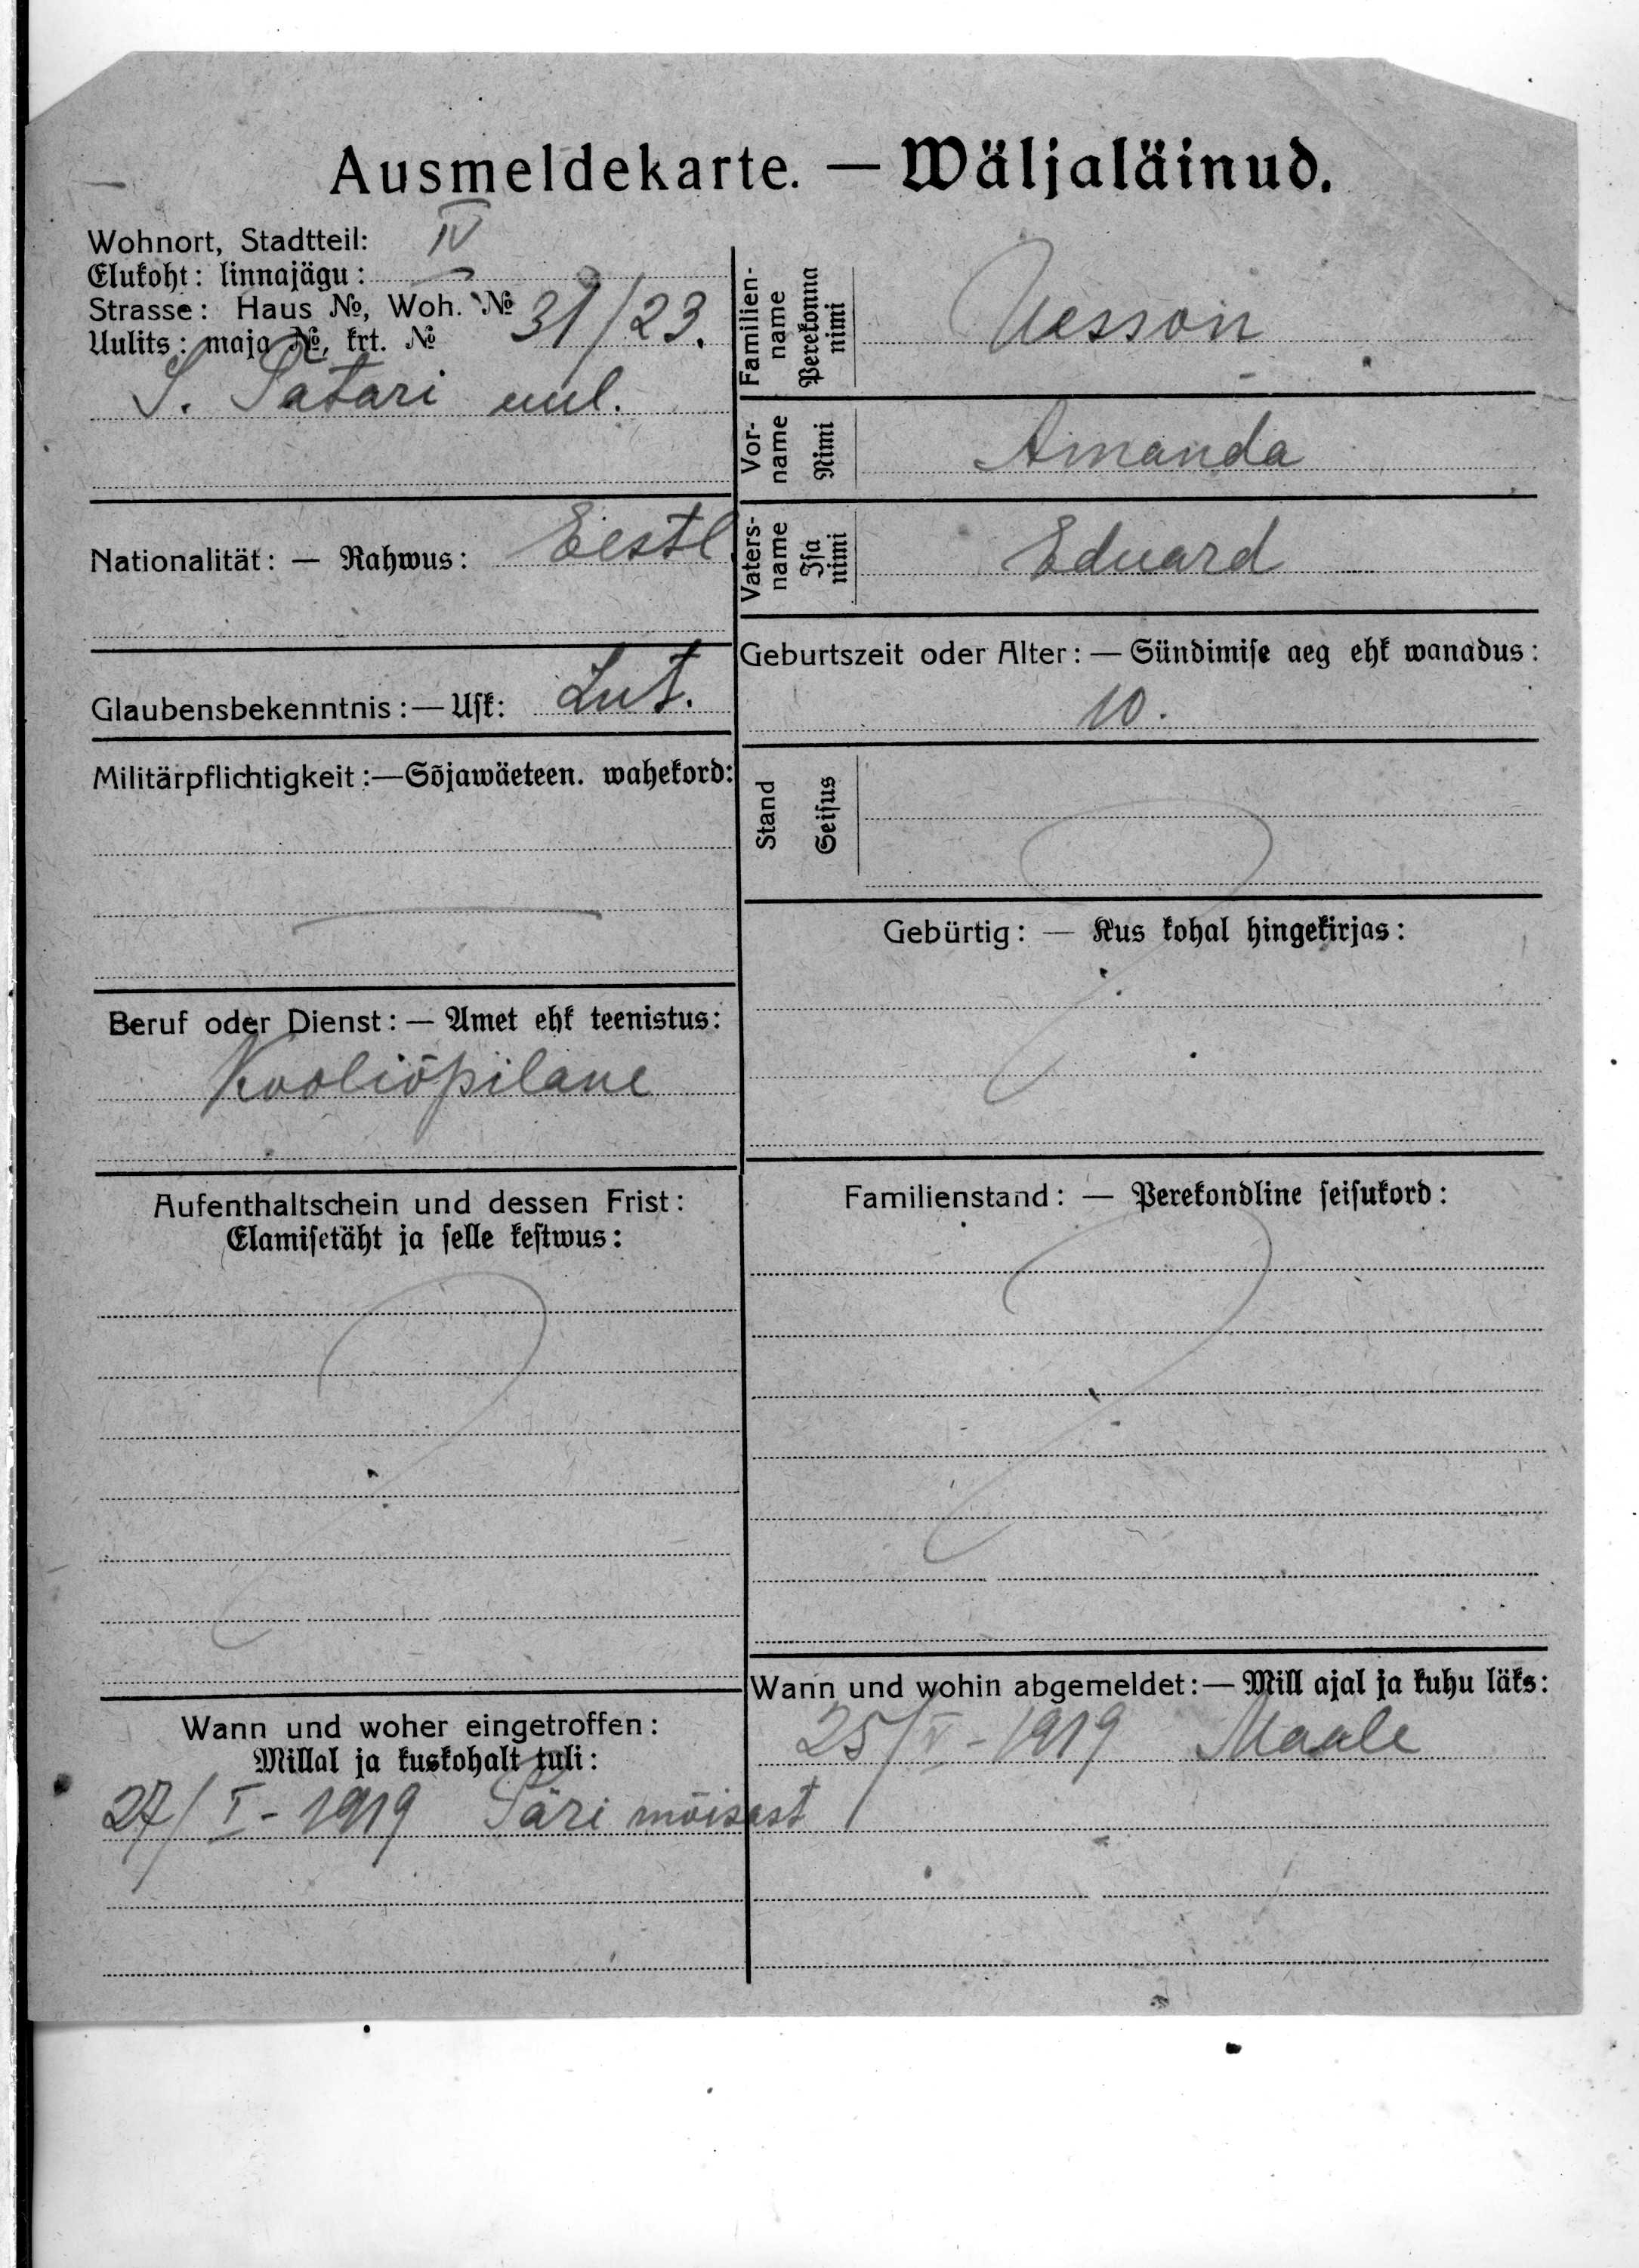 Ausmeldekarte. — Wäljaläinud.
Wohnort, Stadtteil: IV
Elukoht: linnajägu:
Strasse: Haus №, Woh. № 31/23.
Uulits: maja №, krt. №
S. Tatari uul.
Nationalität: — Rahwus: Eestl.
Glaubensbekenntnis: — Usk: Lut.
Militärpflichtigkeit: — Sõjawäeteen. wahekord:
Beruf oder Dienst: — Amet ehk teenistus:
Kooliõpilane
Aufenthaltschein und dessen Frist:
Elamisetäht ja selle kestwus:
?
Wann und woher eingetroffen:
Millal ja kuskohalt tuli:
27/I - 1919 Säri mõisast
Familien-
name
Perekonna
nimi
Uesson
Vor-
name
Nimi
Amanda
Vaters-
name
Isa
nimi
Eduard
Geburtszeit oder Alter: — Sündimise aeg ehk wanadus:
10.
Stand
Seisus
?
Gebürtig: — Kus kohal hingekirjas:
Familienstand: — Perekondline seisukord:
?
Wann und wohin abgemeldet: — Mill ajal ja kuhu läks:
25/V - 1919 Maale